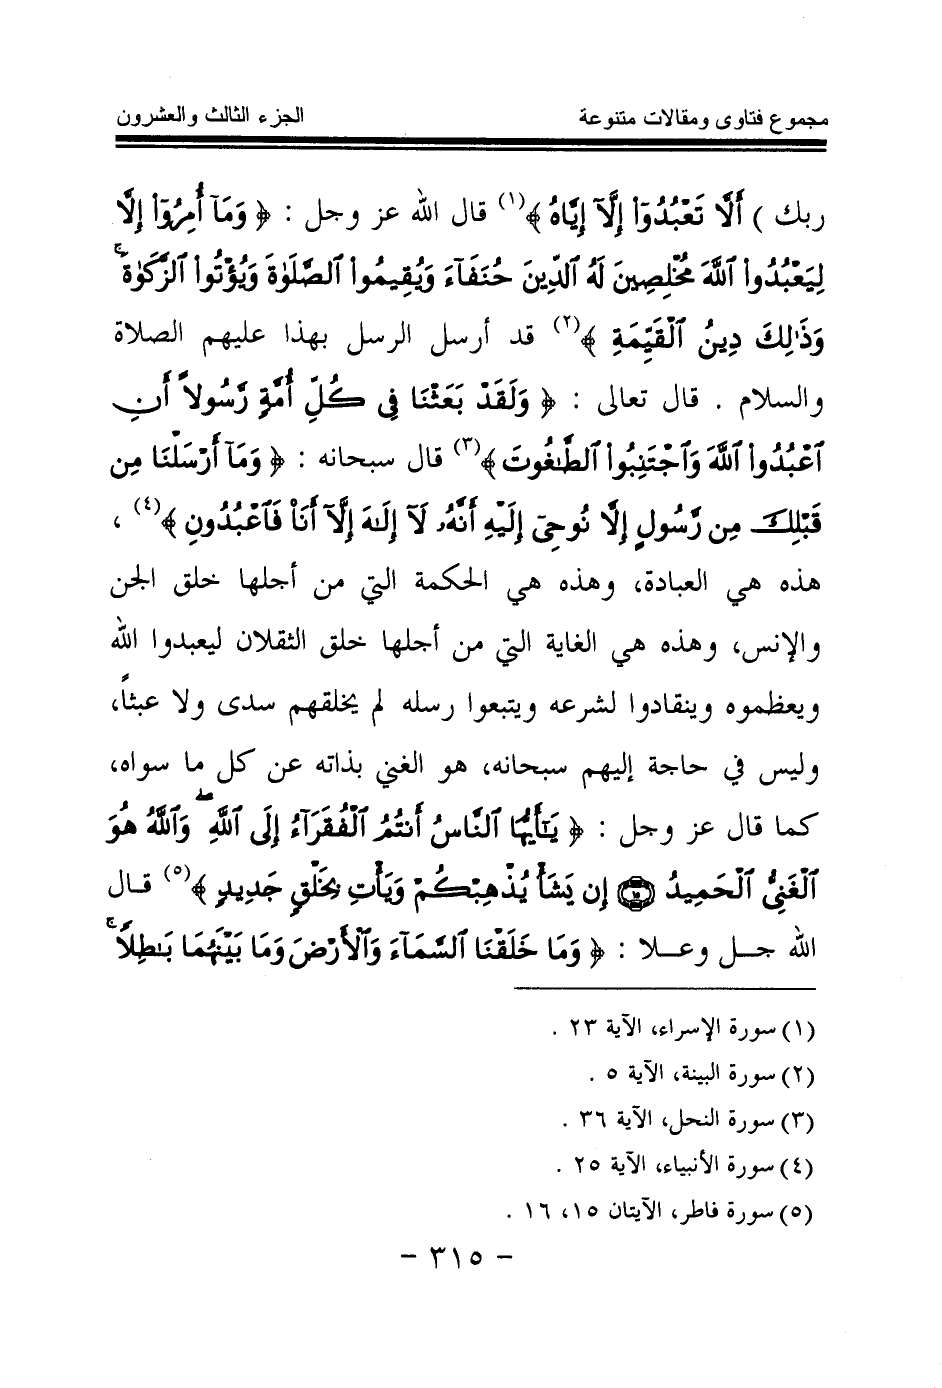 مجموع فتاوى ومقالات متنوعة الجزء الثالث والعشرون
ربك ) أَلَّا تَعْبُدُوٓا۟ إِلَّآ إِيَّاهُ ﴾(١) قال الله عز وجل : ﴿ وَمَآ أُمِرُوٓا۟ إِلَّا
لِيَعْبُدُوا۟ ٱللَّهَ مُخْلِصِينَ لَهُ ٱلدِّينَ حُنَفَآءَ وَيُقِيمُوا۟ ٱلصَّلَوٰةَ وَيُؤْتُوا۟ ٱلزَّكَوٰةَ ۚ
وَذَٰلِكَ دِينُ ٱلْقَيِّمَةِ ﴾(٢) قد أرسل الرسل بهذا عليهم الصلاة
والسلام . قال تعالى : ﴿ وَلَقَدْ بَعَثْنَا فِى كُلِّ أُمَّةٍ رَّسُولاً أَنِ
ٱعْبُدُوا۟ ٱللَّهَ وَٱجْتَنِبُوا۟ ٱلطَّٰغُوتَ ﴾(٣) قال سبحانه : ﴿ وَمَآ أَرْسَلْنَا مِن
قَبْلِكَ مِن رَّسُولٍ إِلَّا نُوحِىٓ إِلَيْهِ أَنَّهُۥ لَآ إِلَٰهَ إِلَّآ أَنَا۠ فَٱعْبُدُونِ ﴾(٤) ،
هذه هي العبادة، وهذه هي الحكمة التي من أجلها خلق الجن
والإنس، وهذه هي الغاية التي من أجلها خلق الثقلان ليعبدوا الله
ويعظموه وينقادوا لشرعه ويتبعوا رسله لم يخلقهم سدى ولا عبثاً،
وليس في حاجة إليهم سبحانه، هو الغني بذاته عن كل ما سواه،
كما قال عز وجل : ﴿ يَٰٓأَيُّهَا ٱلنَّاسُ أَنتُمُ ٱلْفُقَرَآءُ إِلَى ٱللَّهِ ۖ وَٱللَّهُ هُوَ
ٱلْغَنِىُّ ٱلْحَمِيدُ ۝١٥ إِن يَشَأْ يُذْهِبْكُمْ وَيَأْتِ بِخَلْقٍ جَدِيدٍ ﴾(٥) قال
الله جل وعلا : ﴿ وَمَا خَلَقْنَا ٱلسَّمَآءَ وَٱلْأَرْضَ وَمَا بَيْنَهُمَا بَٰطِلًا ۚ
(١) سورة الإسراء، الآية ٢٣ .
(٢) سورة البينة، الآية ٥ .
(٣) سورة النحل، الآية ٣٦ .
(٤) سورة الأنبياء، الآية ٢٥ .
(٥) سورة فاطر، الآيتان ١٥، ١٦ .
- ٣١٥ -